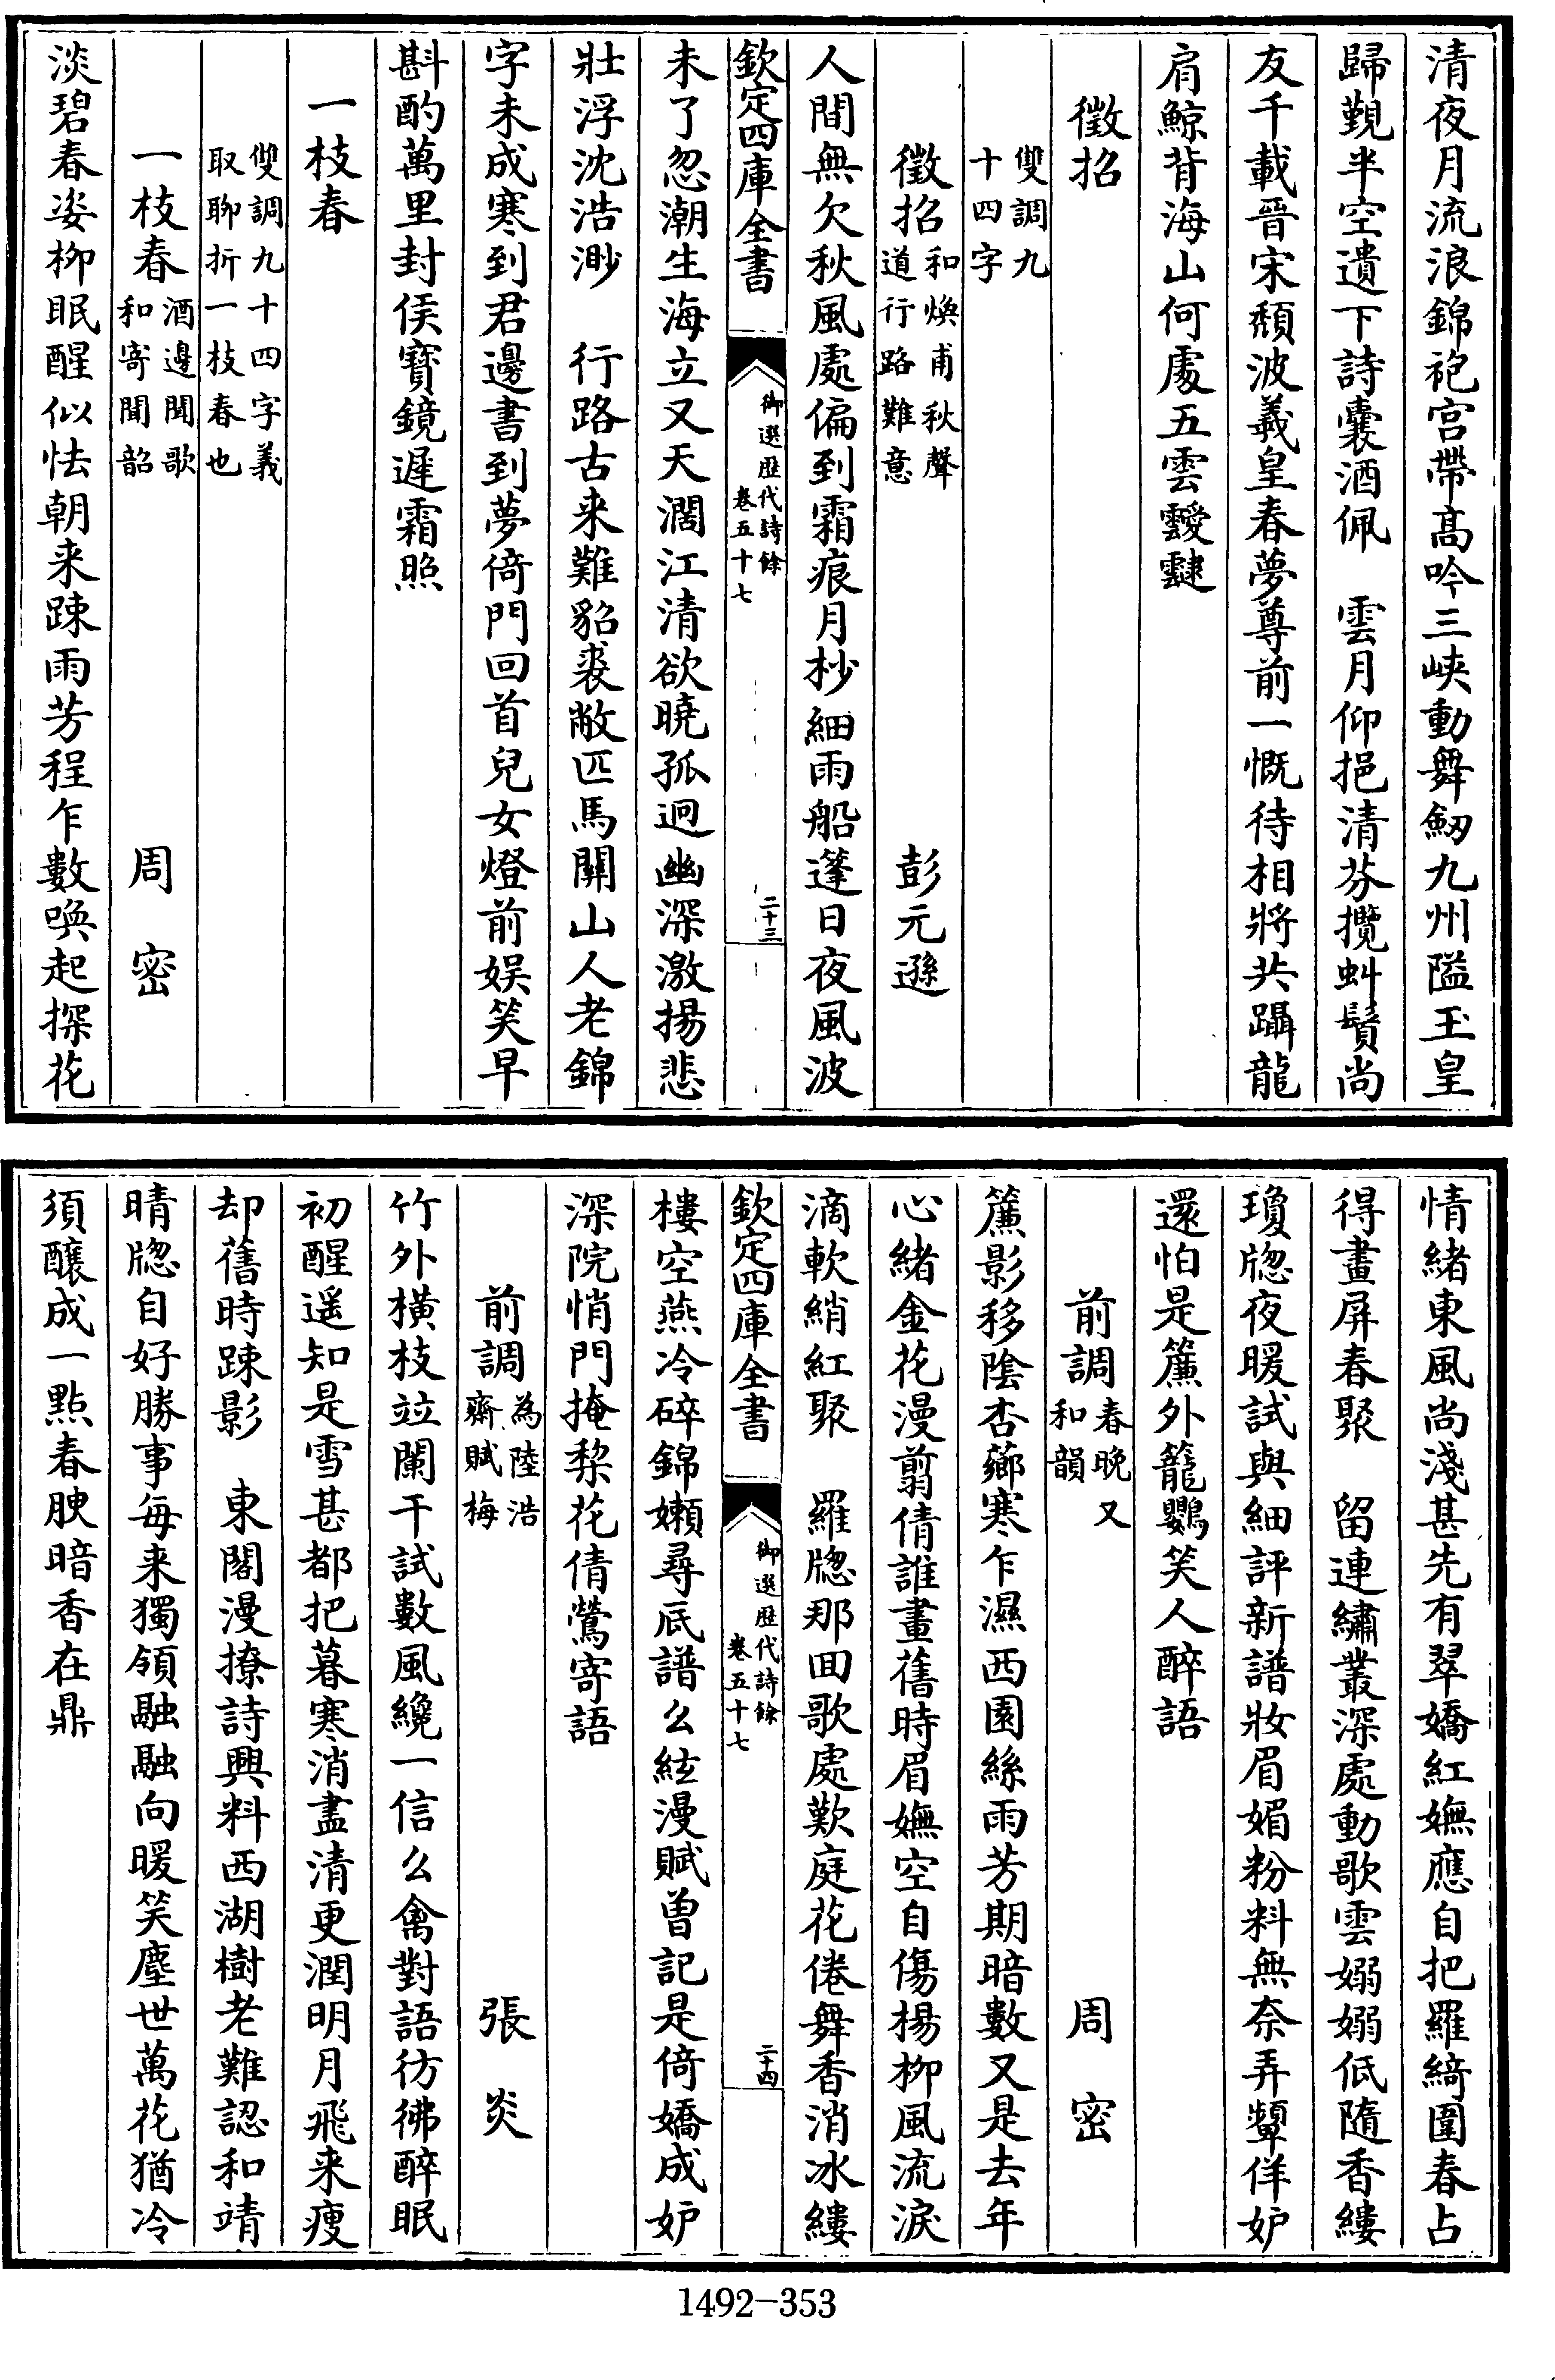 清夜月流浪錦袍宫帶髙吟三峡動舞劒九州隘玉皇
歸覲半空遺下詩囊酒佩　雲月仰挹清芬攬虯鬚尚
友千載晉宋頽波羲皇春夢尊前一慨待相將共躡龍
肩鯨背海山何處五雲靉靆
徵招
雙調九
十四字
徵招
和煥甫秋聲
道行路難意
彭元遜
人間無欠秋風處偏到霜痕月杪細雨船篷日夜風波
欽定四庫全書
御選歴代詩餘
卷五十七
二十三
未了忽潮生海立又天濶江清欲曉孤迥幽深激揚悲
壯浮沈浩渺　行路古来難貂裘敝匹馬關山人老錦
字未成寒到君邊書到夢倚門回首兒女燈前娱笑早
斟酌萬里封侯寳鏡遲霜照
一枝春
雙調九十四字義
取聊折一枝春也
一枝春
酒邊聞歌
和寄閒韵
周密
淡碧春姿柳眠醒似怯朝来踈雨芳程乍數喚起探花
情緒東風尚淺甚先有翠嬌紅嫵應自把羅綺圍春占
得畫屏春聚　留連繡叢深處動歌雲嫋嫋低隨香縷
瓊牕夜暖試與細評新譜妝眉媚粉料無奈弄顰佯妒
還怕是簾外籠鸚笑人醉語
前調
春晚又
和韻
周密
簾影移陰杏薌寒乍濕西園絲雨芳期暗數又是去年
心緒金花漫翦倩誰畫舊時眉嫵空自傷楊柳風流淚
滴軟綃紅聚　羅牕那囬歌處歎庭花倦舞香消冰縷
欽定四庫全書
御選歴代詩餘
卷五十七
二十四
樓空燕冷碎錦嬾尋㡳譜么絃漫賦曾記是倚嬌成妒
深院悄門掩棃花倩鶯寄語
前調
為陸浩
齋賦梅
張炎
竹外横枝竝闌干試數風纔一信么禽對語彷彿醉眠
初醒遥知是雪甚都把暮寒消盡清更潤明月飛来瘦
却舊時踈影　東閣漫撩詩興料西湖樹老難認和靖
晴牕自好勝事每来獨領融融向暖笑塵世萬花猶冷
須釀成一點春腴暗香在鼎
1492-353